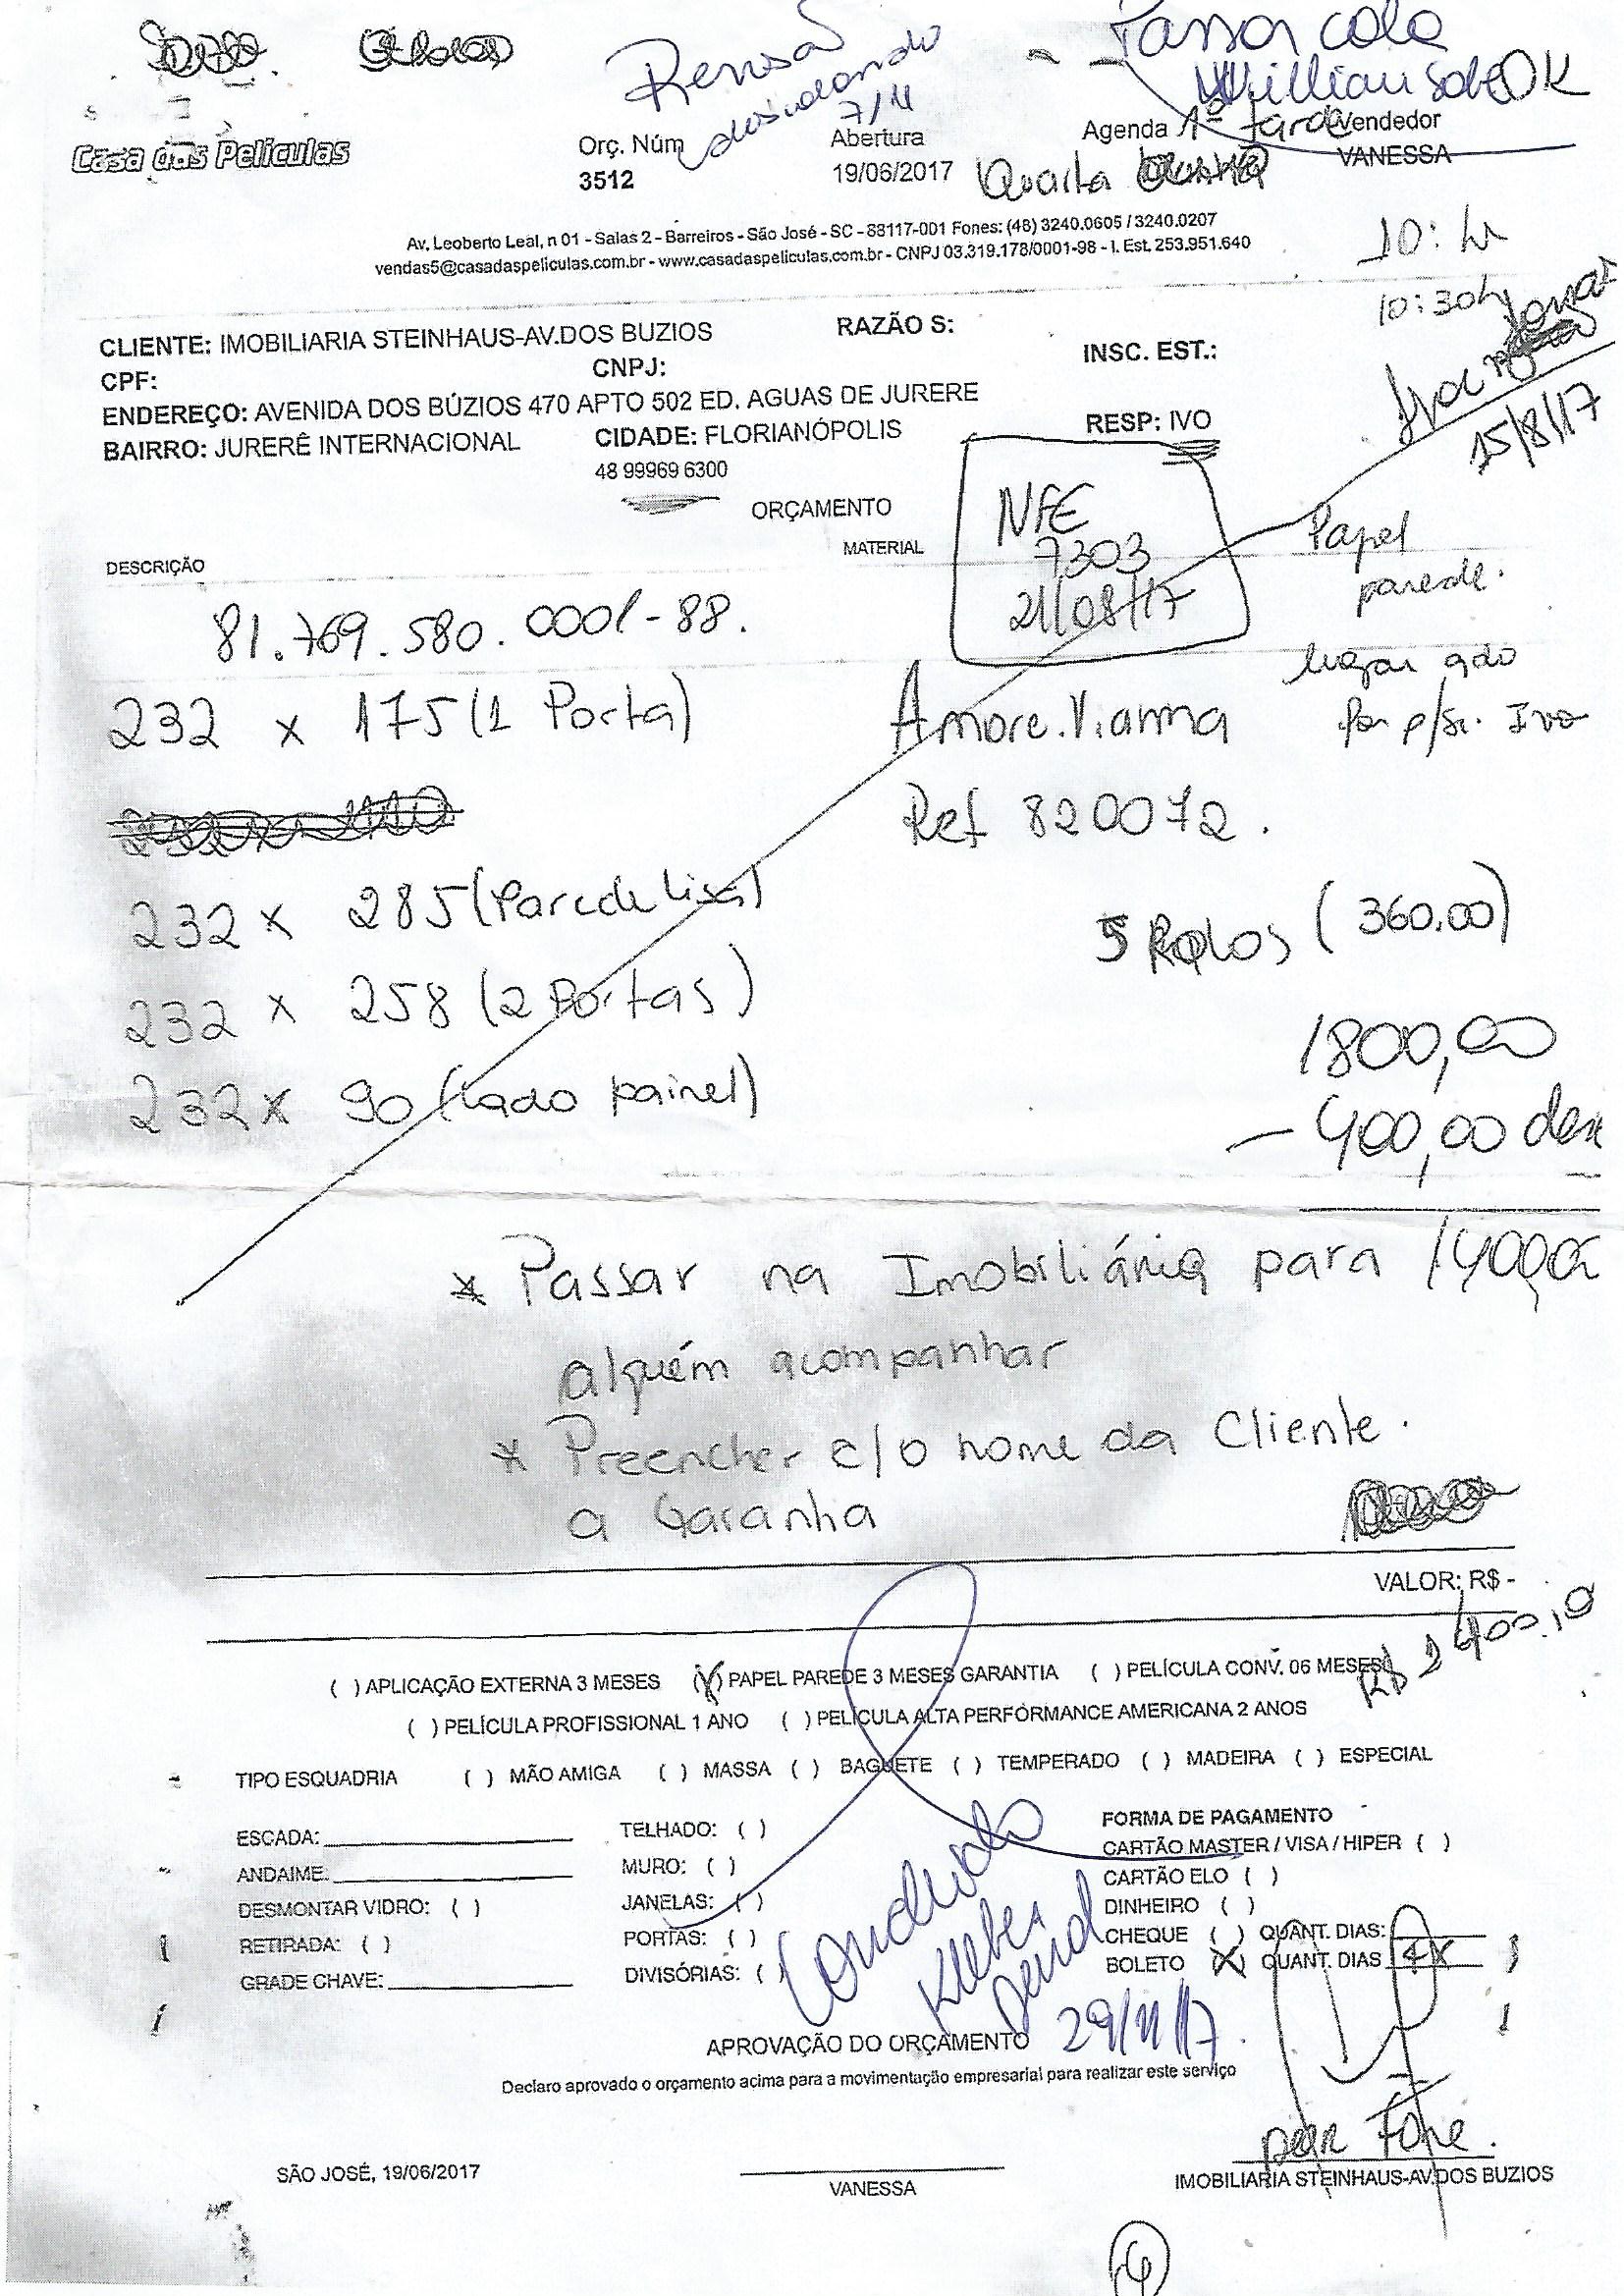 Passar cola
Willian Sobe OK
7/11
Casa das Películas
Orç. Núm
3512
Abertura
19/06/2017
Agenda 1ª tarde
Quarta
Vendedor
VANESSA
Av. Leoberto Leal, n 01 - Salas 2 - Barreiros - São José - SC - 88117-001 Fones: (48) 3240.0605 / 3240.0207
vendas5@casadaspeliculas.com.br - www.casadaspeliculas.com.br - CNPJ 03.319.178/0001-98 - I. Est. 253.951.640
10:
10:30h
15/8/17
CLIENTE: IMOBILIARIA STEINHAUS-AV.DOS BUZIOS RAZÃO S:
CPF: CNPJ: INSC. EST.:
ENDEREÇO: AVENIDA DOS BÚZIOS 470 APTO 502 ED. AGUAS DE JURERE
BAIRRO: JURERÊ INTERNACIONAL CIDADE: FLORIANÓPOLIS RESP: IVO
48 99969 6300
ORÇAMENTO
DESCRIÇÃO MATERIAL
NFE
7303
21/08/17
Papel
parede.
81.769.580.0001-88.
p/Sr. Ivo
232 x 175 (1 Porta) Amore.Vianna
Ref 820072.
232 x 285 (Parede lisa)
5 Rolos (360,00)
232 x 258 (2 Portas)
1800,00
232 x 90 (lado painel)
- 400,00
1400,00
* Passar na Imobiliária para
alguém acompanhar
* Preencher c/o nome da Cliente.
a Garantia
VALOR: R$ -
R$ 1400,00
( ) APLICAÇÃO EXTERNA 3 MESES (X) PAPEL PAREDE 3 MESES GARANTIA ( ) PELÍCULA CONV. 06 MESES
( ) PELÍCULA PROFISSIONAL 1 ANO ( ) PELÍCULA ALTA PERFORMANCE AMERICANA 2 ANOS
TIPO ESQUADRIA ( ) MÃO AMIGA ( ) MASSA ( ) BAGUETE ( ) TEMPERADO ( ) MADEIRA ( ) ESPECIAL
ESCADA:
ANDAIME:
DESMONTAR VIDRO: ( )
RETIRADA: ( )
GRADE CHAVE:
TELHADO: ( )
MURO: ( )
JANELAS: ( )
PORTAS: ( )
DIVISÓRIAS: ( )
FORMA DE PAGAMENTO
CARTÃO MASTER / VISA / HIPER ( )
CARTÃO ELO ( )
DINHEIRO ( )
CHEQUE ( ) QUANT. DIAS:
BOLETO (X) QUANT. DIAS 4x
Concluido
Kleber
29/11/17.
APROVAÇÃO DO ORÇAMENTO
Declaro aprovado o orçamento acima para a movimentação empresarial para realizar este serviço
por Fone.
SÃO JOSÉ, 19/06/2017
VANESSA
IMOBILIARIA STEINHAUS-AV.DOS BUZIOS